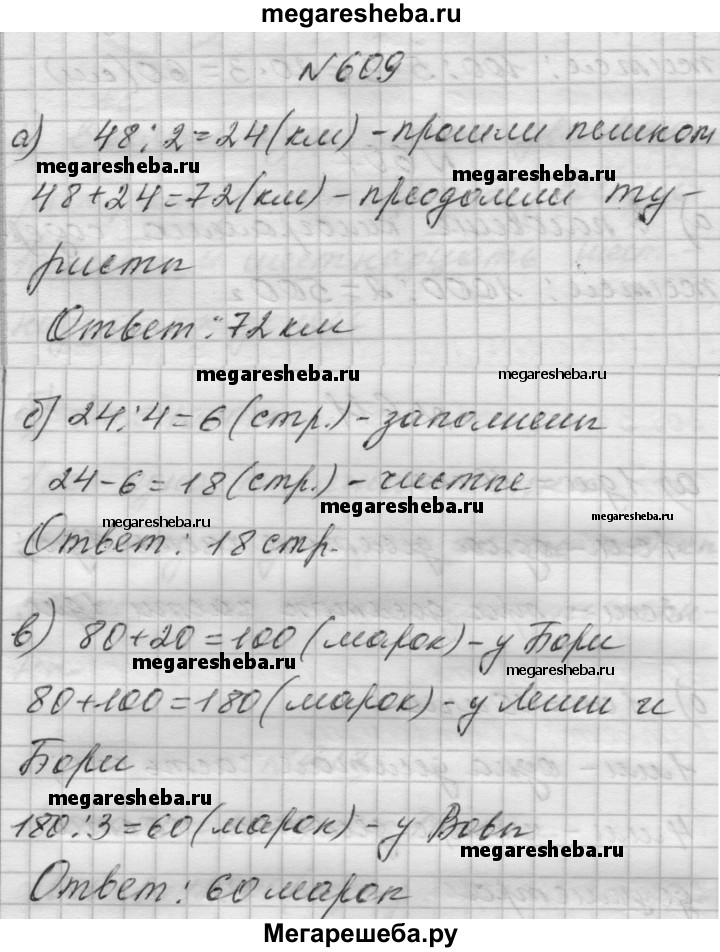 megaresheba.ru
№ 609
а) 48:2=24(км) - прошли пешком
megaresheba.ru
megaresheba.ru
48+24=72(км) - преодолели ту-
ристы
Ответ: 72 км
megaresheba.ru
megaresheba.ru
б) 24:4=6(стр.) - заполнены
24-6=18(стр.) - чистые
megaresheba.ru
megaresheba.ru
megaresheba.ru
Ответ: 18 стр.
в) 80+20=100(марок) - у Бори
megaresheba.ru
megaresheba.ru
80+100=180(марок) - у Лёши и
Бори
megaresheba.ru
180:3=60(марок) - у Вовы
megaresheba.ru
Ответ: 60 марок
Мегарешеба.ру